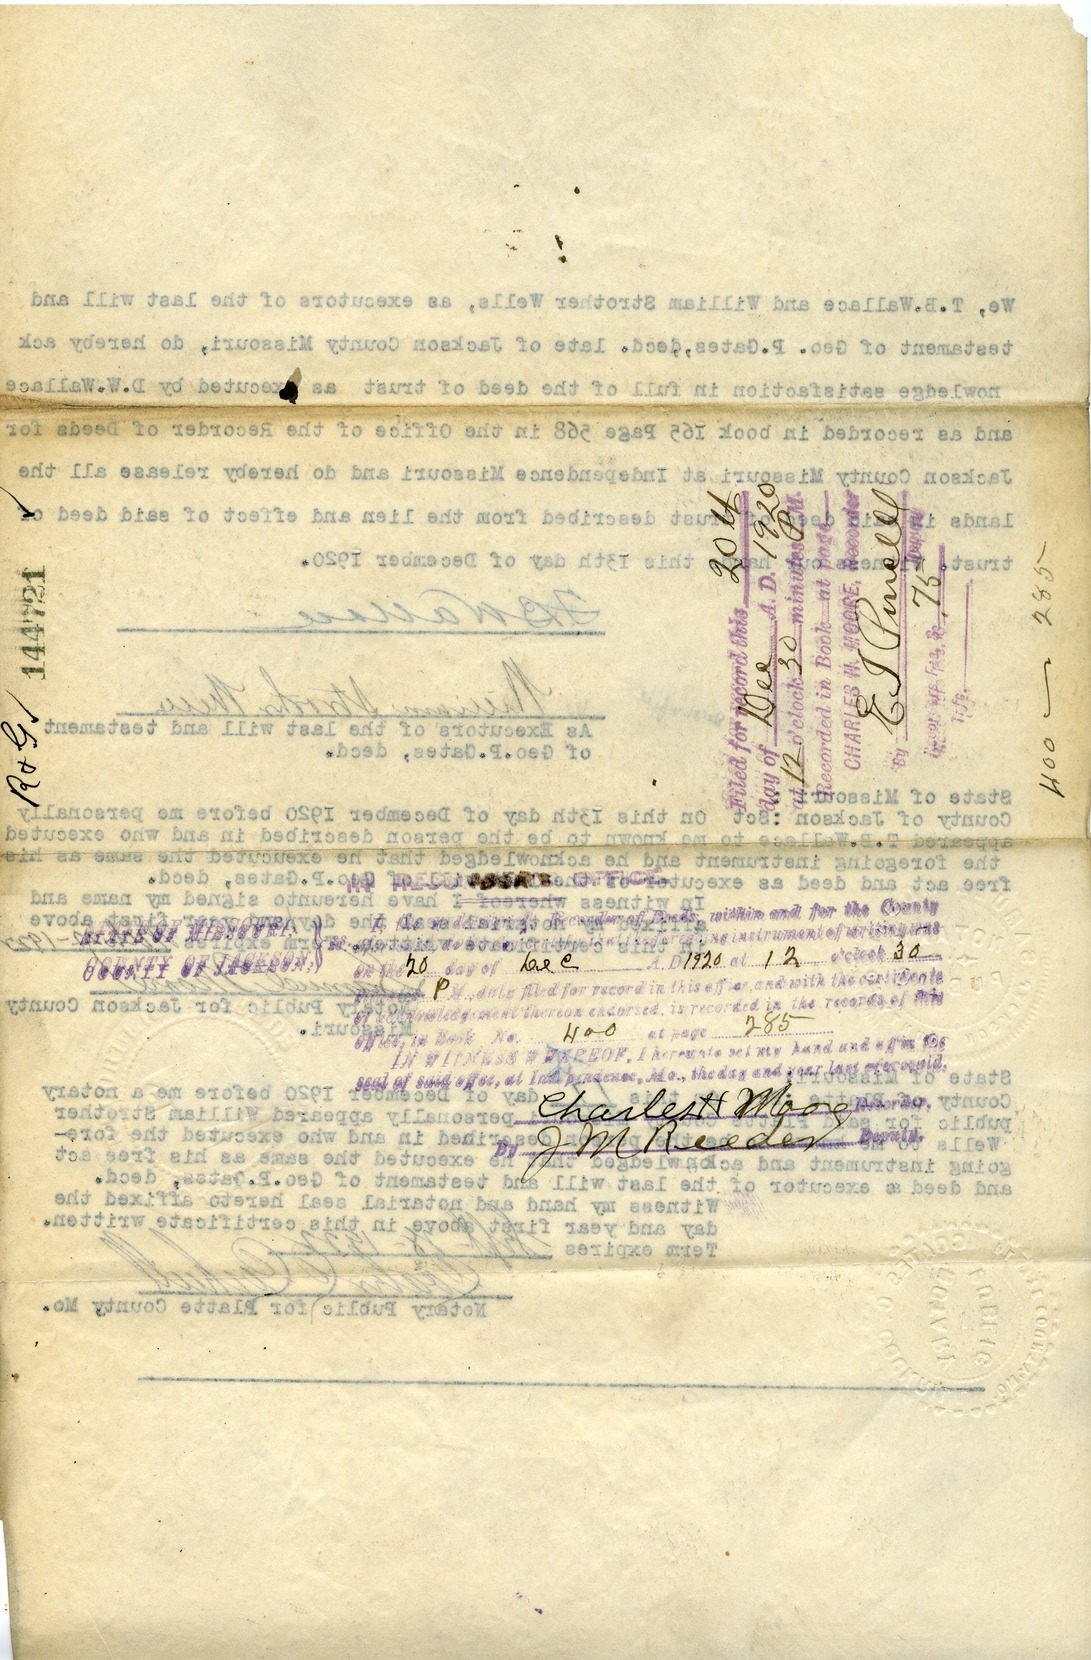 We, T.B.Wallace and William Strother Wells, as executors of the last will and
testament of Geo. P.Gates,decd. late of Jackson County Missouri, do hereby ack
nowledge satisfaction in full of the deed of trust as executed by D.W.Wallace
and as recorded in book 165 Page 568 in the Office of the Recorder of Deeds for
Jackson County Missouri at Independence Missouri and do hereby release all the
lands in said deed of trust described from the lien and effect of said deed of
trust. Witness our hands this 13th day of December 1920.
Wallace
William Strother Wells
As Executors of the last will and testament
of Geo.P.Gates, decd.
State of Missouri
County of Jackson :Sct On this 13th day of December 1920 before me personally
appeared T.B.Wallace to me known to be the person described in and who executed
the foregoing instrument and he acknowledged that he exeucuted the same as his
free act and deed as executor of the will of Geo.P.Gates, decd.
In witness whereof I have hereunto signed my name and
affixed my notarial seal the day and year first above
in this certificate written. Term expires
Notary Public for Jackson County
Missouri.
State of Missouri
County of Platte day of December 1920 before me a notary
public for said Platte County personally appeared William Strother
Wells to me the person described in and who executed the fore-
going instrument and acknowledged that he executed the same as his free act
and deed a executor of the last will and testament of Geo.P.Gates, decd.
Witness my hand and notarial seal hereto affixed the
day and year first above in this certificate written.
Term expires
Notary Public for Platte County Mo.
144721
R & G
Filed for record this 20th
day of Dec A. D. 1920
at 12 o'clock 30 minutes P M.
Recorded in Book at page
CHARLES H. MOORE, Recorder
By E J Purcell Deputy
75
400 — 285
IN RECORDER'S OFFICE
STATE OF MISSOURI,
COUNTY OF JACKSON,
I, the undersigned, Recorder of Deeds, within and for the County
aforesaid, do hereby certify that the foregoing instrument of writing was
on the 20 day of Dec A. D. 1920 at 12 o'clock 30
minutes P M., duly filed for record in this office, and with the certificate
of acknowledgement thereon endorsed, is recorded in the records of this
office, in Book No. 400 at page 285
IN WITNESS WHEREOF, I hereunto set my hand and affix the
seal of said office, at Independence, Mo., the day and year last aforesaid.
Charles H Moore Recorder.
By J M Reeder Deputy.
NOTARY PUBLIC